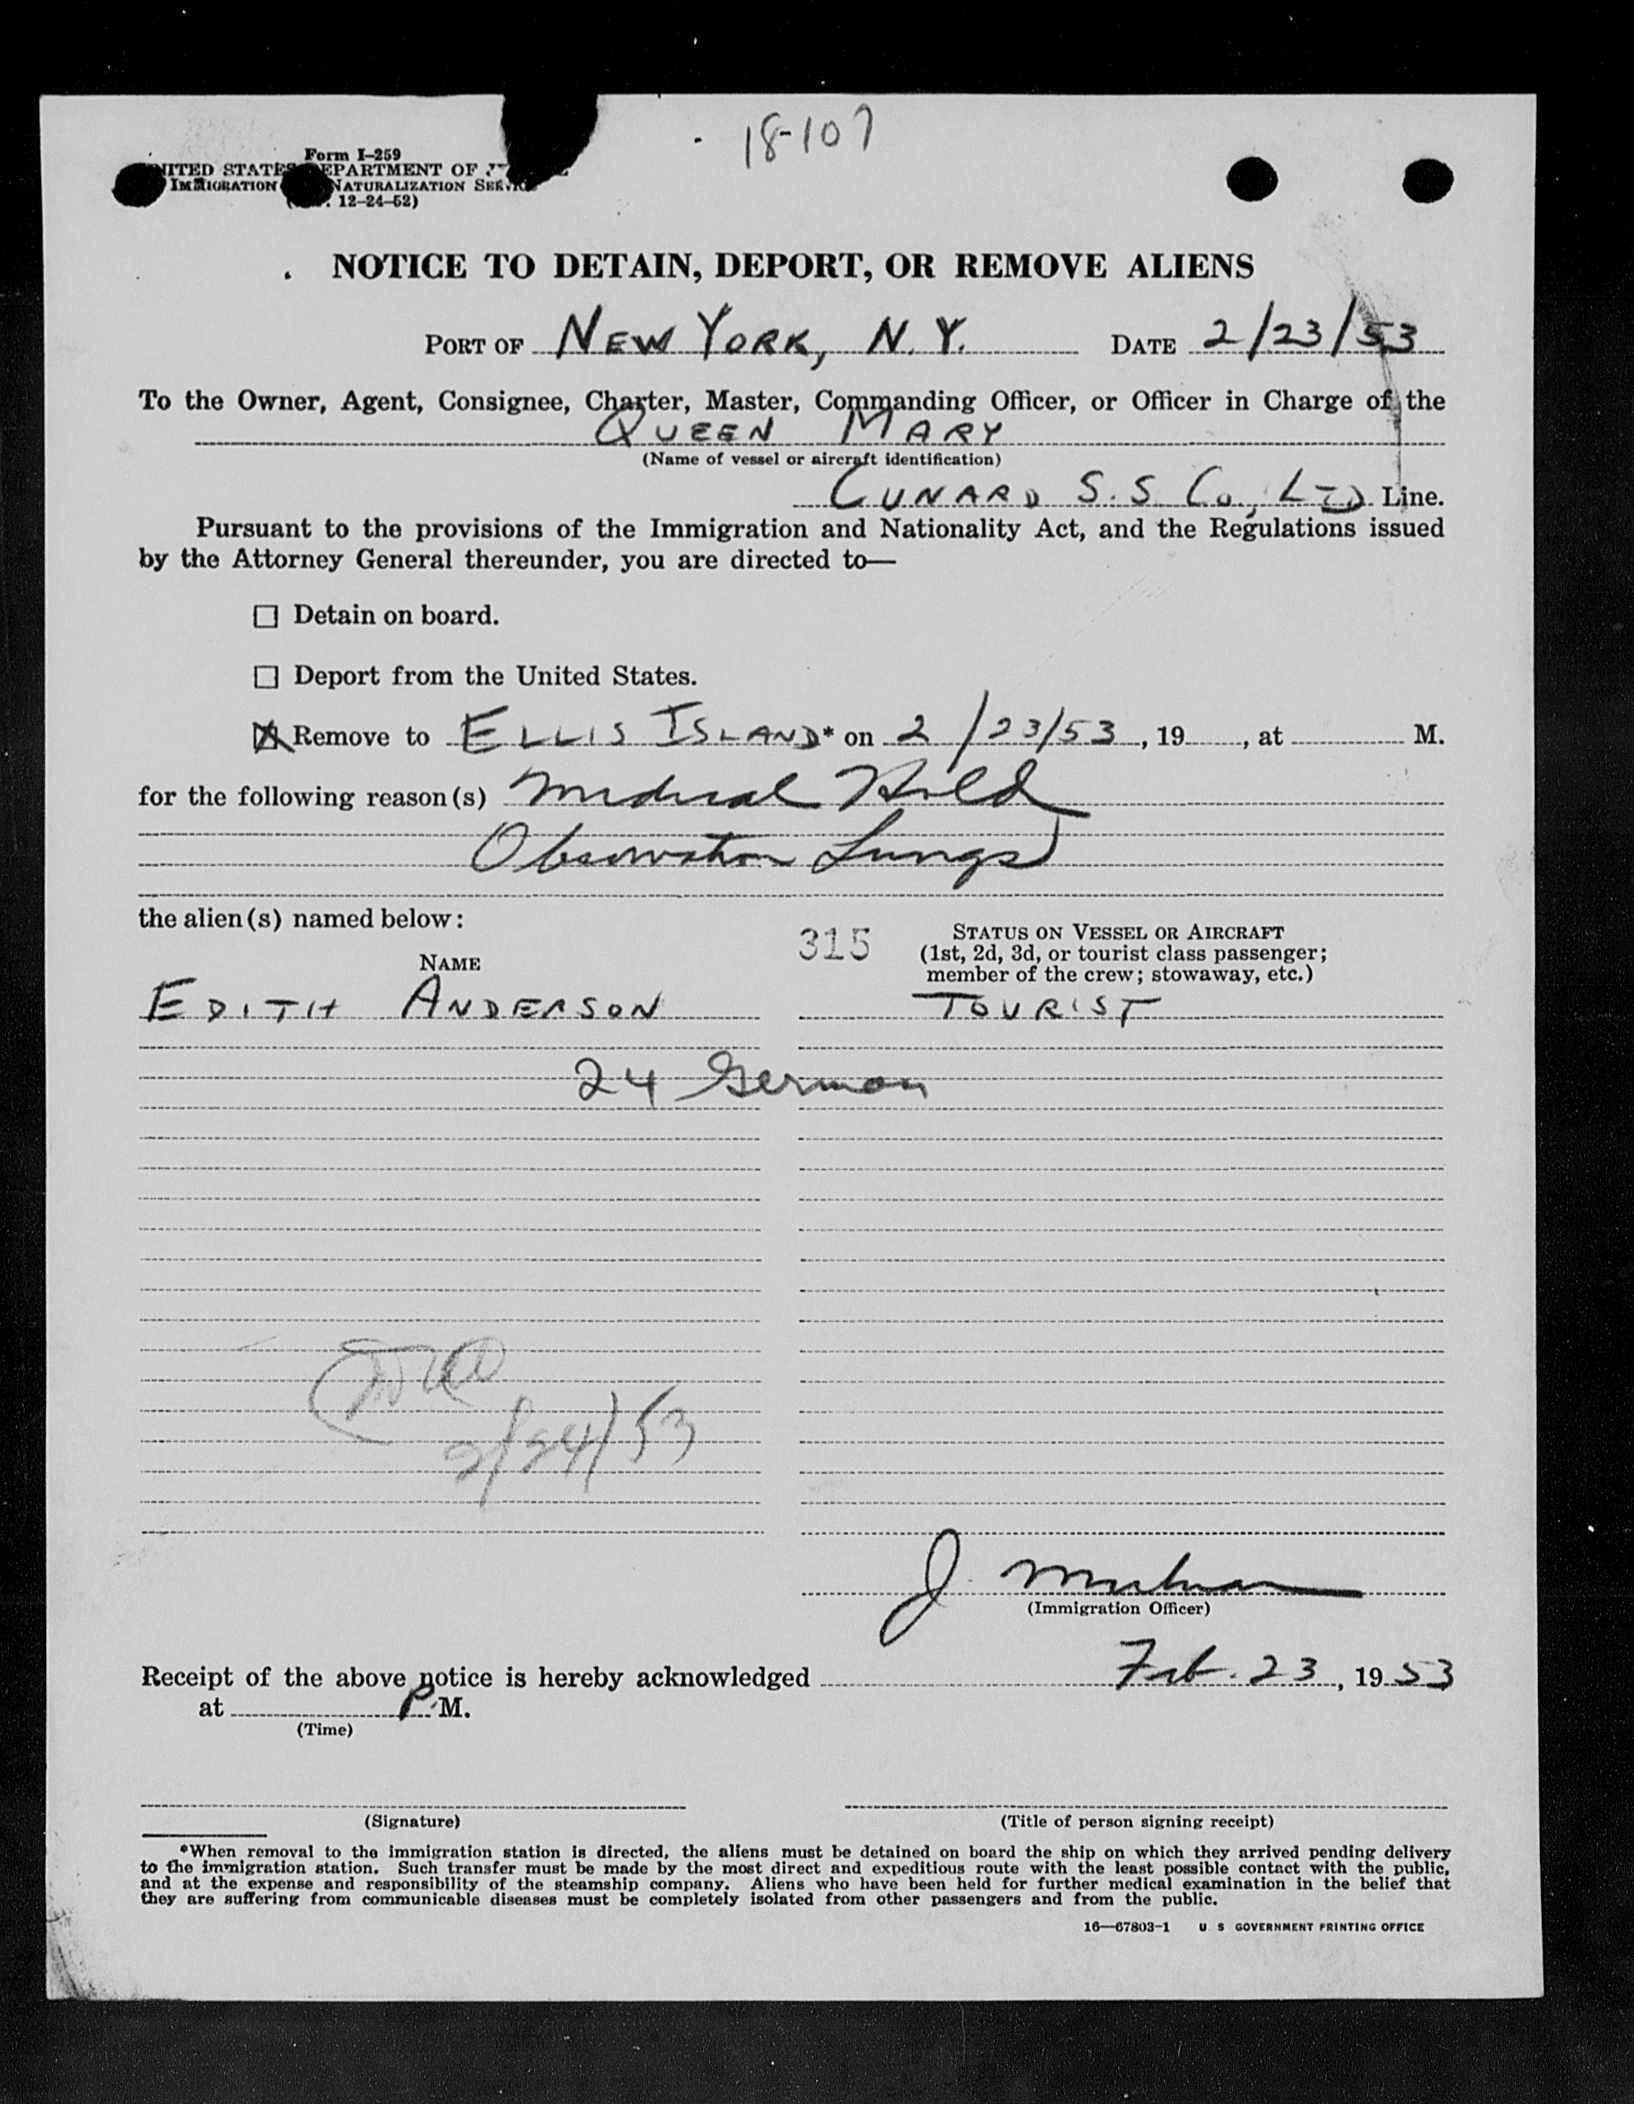 18-107
Form I-259
ITED STATES DEPARTMENT OF
IMMIGRATION NATURALIZATION SERVICE
12-24-52)
NOTICE TO DETAIN, DEPORT, OR REMOVE ALIENS
PORT OF NEW YORK, N.Y. DATE 2/23/53
To the Owner, Agent, Consignee, Charter, Master, Commanding Officer, or Officer in Charge of the
QUEEN MARY
(Name of vessel or aircraft identification)
CUNARD S.S. Co., LTD Line.
Pursuant to the provisions of the Immigration and Nationality Act, and the Regulations issued
by the Attorney General thereunder, you are directed to—
☐ Detain on board.
☐ Deport from the United States.
☒ Remove to ELLIS ISLAND* on 2/23/53, 19, at M.
for the following reason(s) Medical Hold
Observation Lungs
the alien(s) named below:
315
STATUS ON VESSEL OR AIRCRAFT
(1st, 2d, 3d, or tourist class passenger;
member of the crew; stowaway, etc.)
NAME
EDITH ANDERSON TOURIST
24 German
2/24/53
J.
(Immigration Officer)
Receipt of the above notice is hereby acknowledged Feb. 23, 1953
at P. M.
(Time)
(Signature) (Title of person signing receipt)
*When removal to the immigration station is directed, the aliens must be detained on board the ship on which they arrived pending delivery
to the immigration station. Such transfer must be made by the most direct and expeditious route with the least possible contact with the public,
and at the expense and responsibility of the steamship company. Aliens who have been held for further medical examination in the belief that
they are suffering from communicable diseases must be completely isolated from other passengers and from the public.
16—67803-1 U S GOVERNMENT PRINTING OFFICE